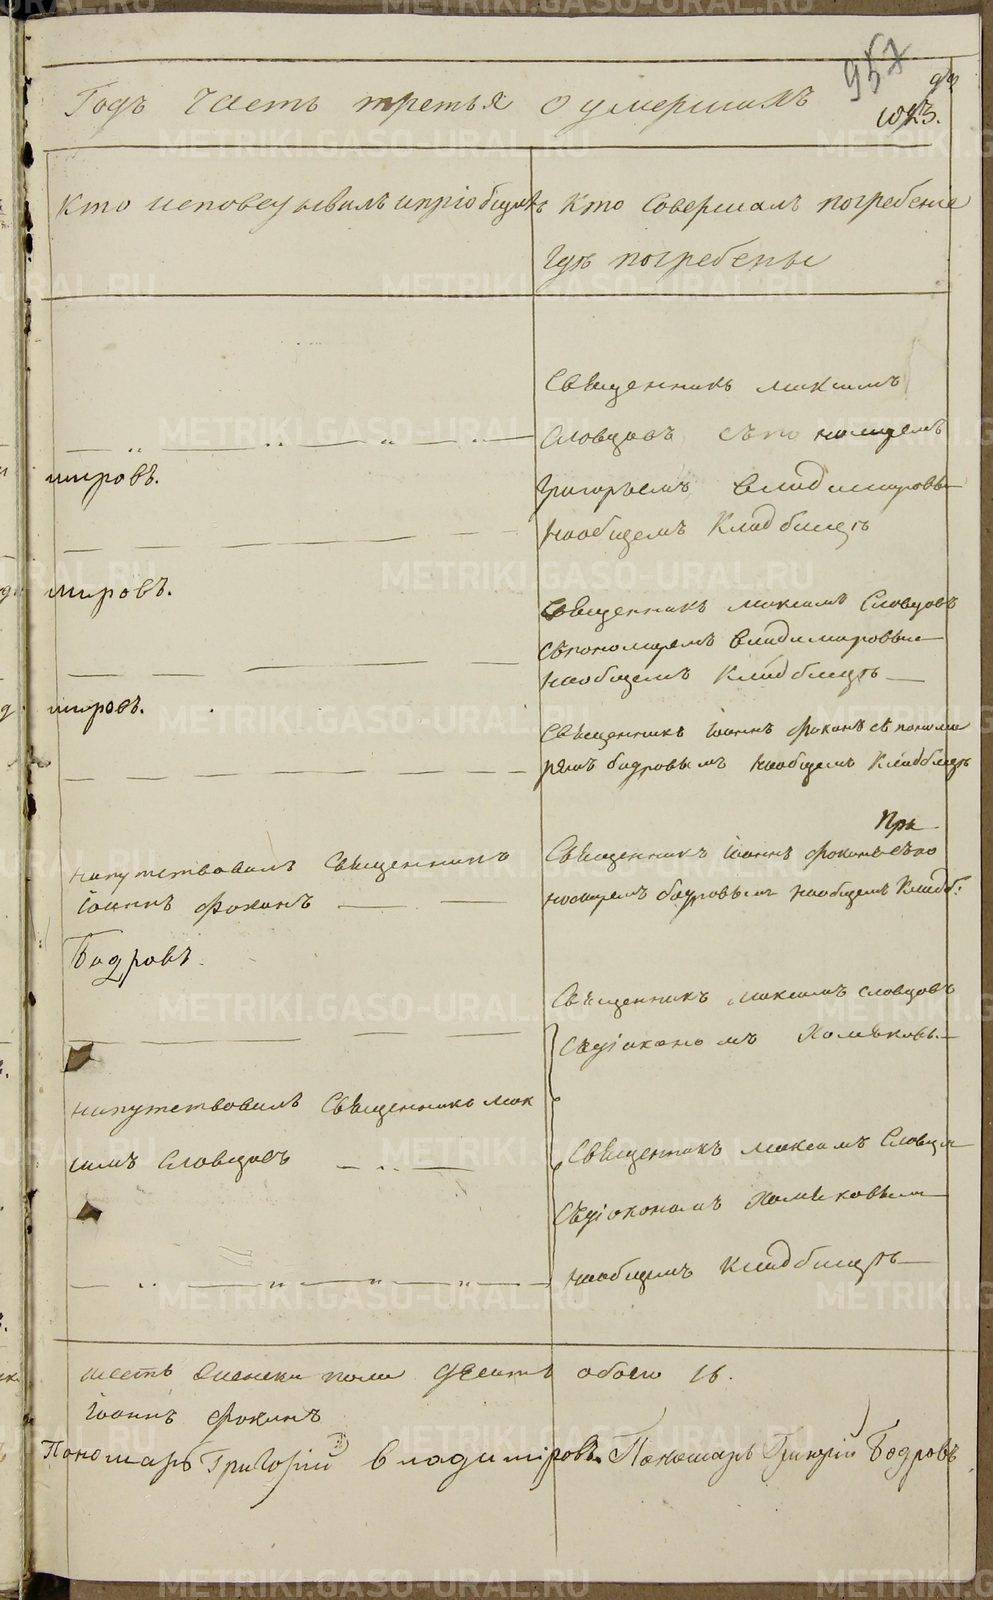 957
Годъ часть третья о умершихъ
Кто исповедывалъ и пріобщалъ
Кто совершалъ погребеніе
где погребены
Священникъ Максимъ
Словцовъ съ пономаремъ
Григорьемъ Владимировы
на общемъ кладбищѣ
мировъ.
мировъ.
Священникъ Максимъ Словцовъ
съ пономаремъ Владимировым
на общемъ кладбищѣ
мировъ.
Священникъ Іоаннъ Фокинъ съ понома
ремъ бодровымъ на общемъ кладбищѣ
напутствовалъ Священникъ
Іоаннъ Фокинъ
Бодровъ.
При
Священникъ Іоаннъ Фокинъ съ по
номаремъ бодровымъ на общемъ кладб:
Священникъ Максимъ Словцовъ
съ діакономъ Хомяковы
напутствовалъ Священникъ Мак
симъ Словцовъ
Священникъ Максимъ Словцов
съ діакономъ Хомяковым
на общемъ кладбищѣ
шесть женска пола десять обоего 16.
Іоаннъ Фокинъ
Пономарь Григорій Владиміровъ Пономарь Григорій Бодровъ
METRIKI.GASO-URAL.RU